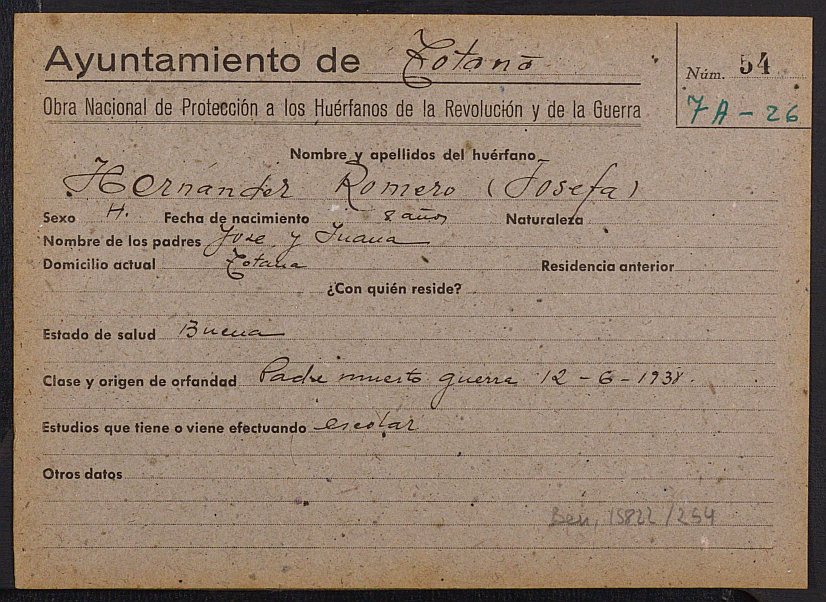 Ayuntamiento de Totana
Núm. 54
7A - 26
Obra Nacional de Protección a los Huérfanos de la Revolución y de la Guerra
Nombre y apellidos del huérfano
Hernández Romero (Josefa)
Sexo H. Fecha de nacimiento 8 años Naturaleza
Nombre de los padres Jose y Juana
Domicilio actual Totana Residencia anterior
¿Con quién reside?
Estado de salud Buena
Clase y origen de orfandad Padre muerto guerra 12 - 6 - 1938.
Estudios que tiene o viene efectuando escolar
Otros datos
Ben, 15822/254